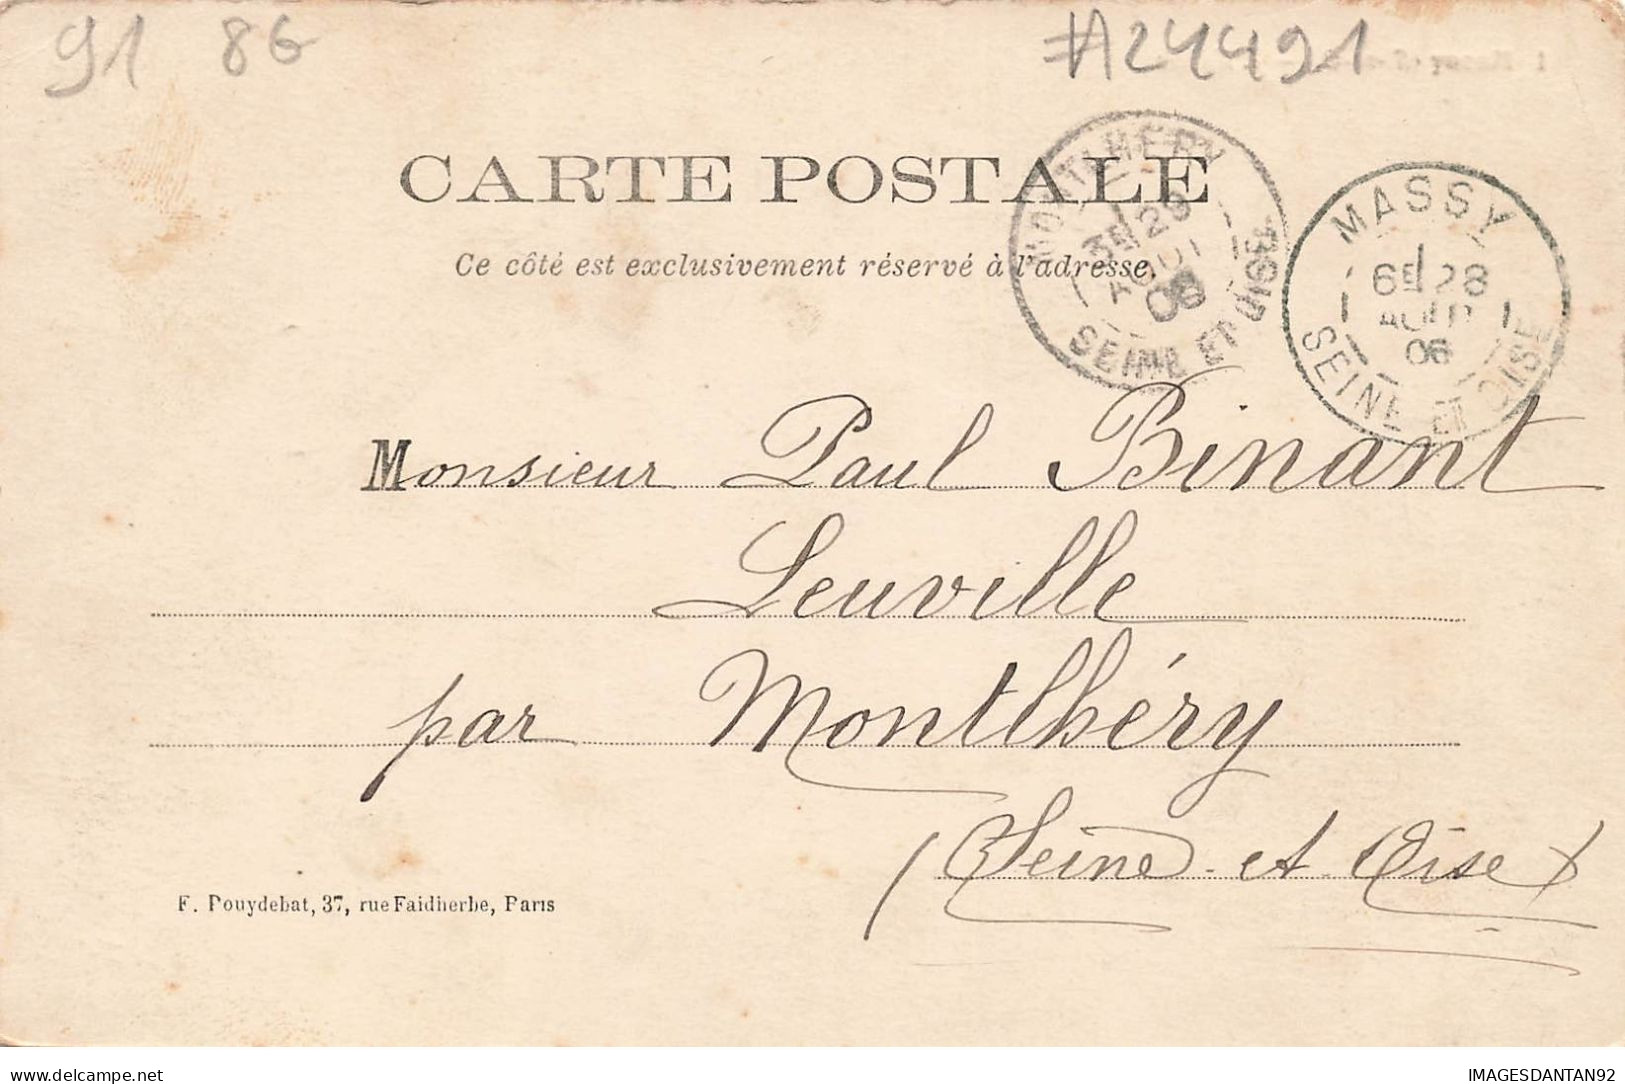 91 86 #A24491
CARTE POSTALE
Ce côté est exclusivement réservé à l'adresse.
MONTLHERY
3E 29
AOUT
06
SEINE ET OISE
MASSY
6E 28
AOUT
06
SEINE ET OISE
Monsieur Paul Binant
Leuville
par Montlhéry
(Seine et Oise)
F. Pouydebat, 37, rue Faidherbe, Paris
delcampe.net
IMAGESDANTAN92